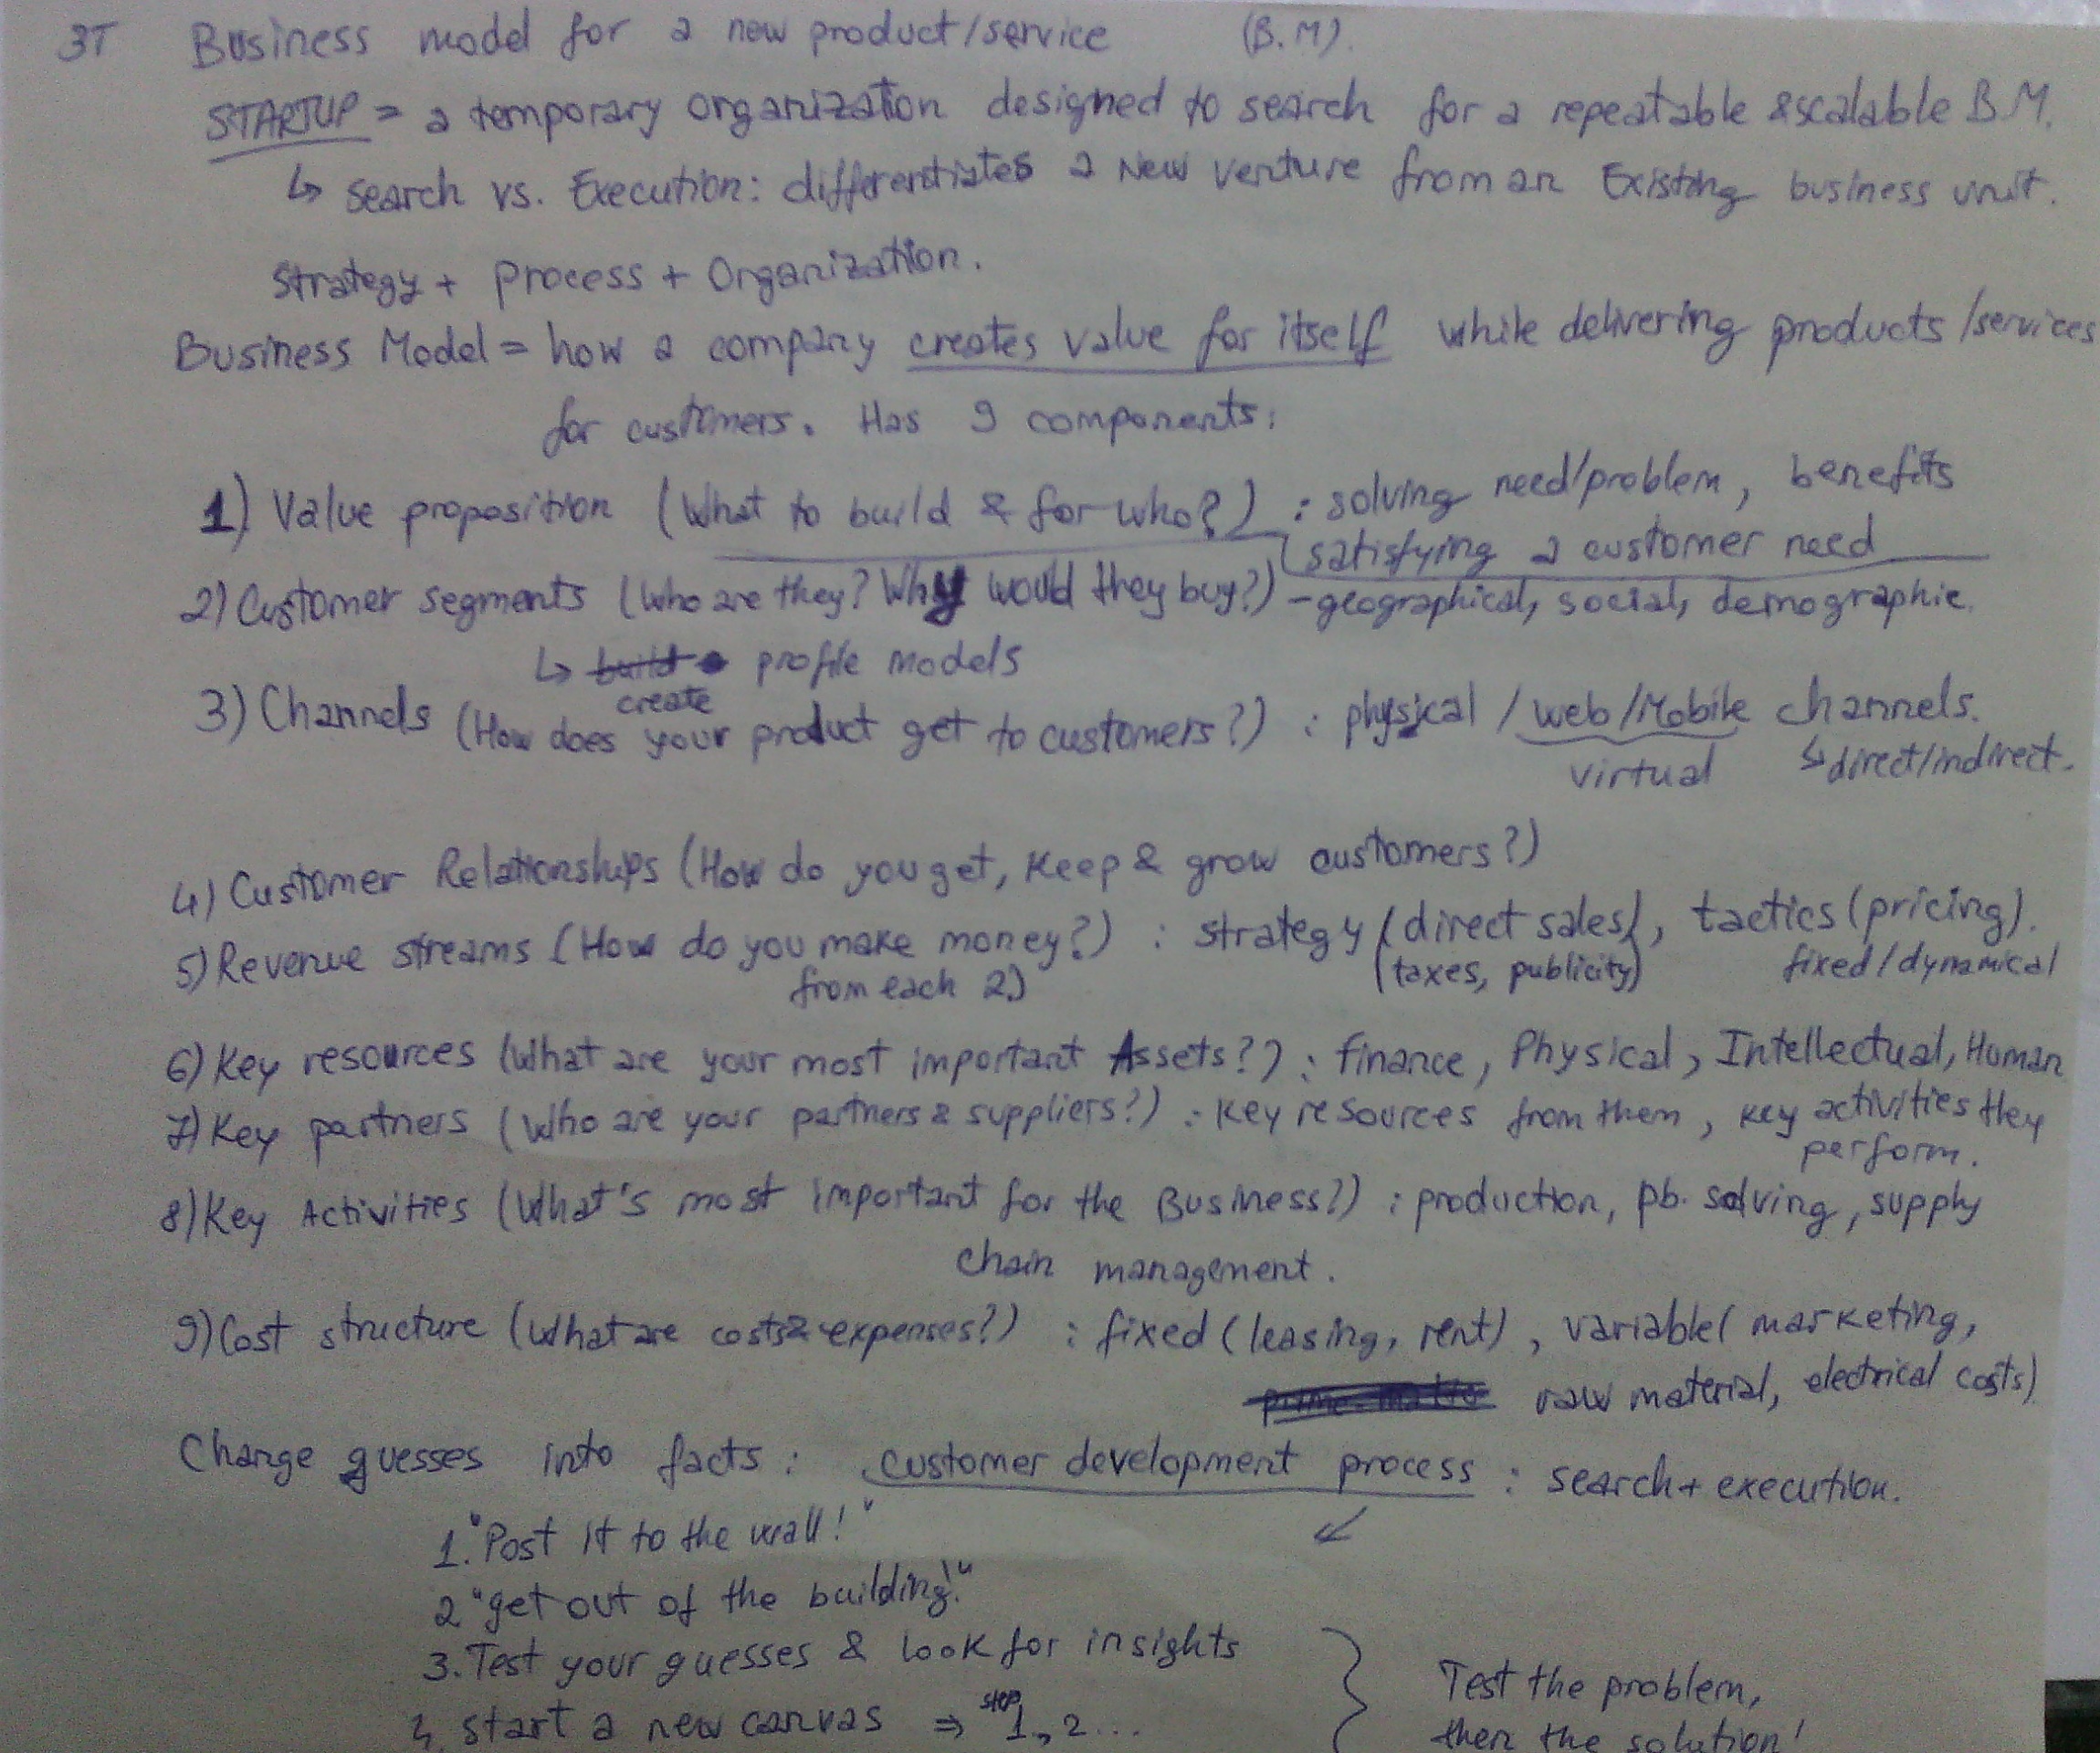 3T Business model for a new product/service (B.M).
STARTUP = a temporary organization designed to search for a repeatable & scalable B.M.
↳ search vs. Execution: differentiates a New venture from an Existing business unit.
Strategy + Process + Organization.
Business Model = how a company creates value for itself while delivering products/services
for customers. Has 9 components:
1) Value proposition (What to build & for who?) : solving need/problem, benefits
satisfying a customer need
2) Customer segments (Who are they? Why would they buy?) - geographical, social, demographic.
↳ build a profile models
create
3) Channels (How does your product get to customers?) : physical / web/Mobile channels.
virtual ↳ direct/indirect.
4) Customer Relationships (How do you get, keep & grow customers?)
5) Revenue streams (How do you make money?) : strategy (direct sales), tactics (pricing).
from each 2) (taxes, publicity) fixed/dynamical
6) Key resources (What are your most important Assets?) : finance, Physical, Intellectual, Human
7) Key partners (Who are your partners & suppliers?) : key resources from them, key activities they
perform.
8) Key Activities (What's most important for the Business?) : production, pb. solving, supply
chain management.
9) Cost structure (What are costs & expenses?) : fixed (leasing, rent), variable (marketing,
raw material, electrical costs)
Change guesses into facts : customer development process : search + execution.
1. "Post it to the wall!"
2 "get out of the building!"
3. Test your guesses & look for insights
4. start a new canvas ⇒ step 1, 2...
Test the problem,
then the solution!